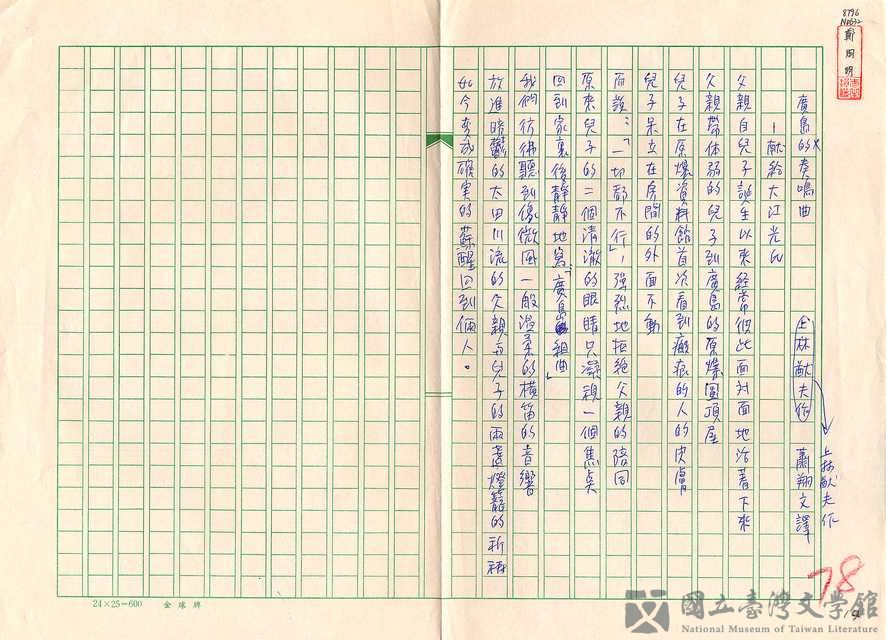 8796
鄭烱明
廣島的奏鳴曲
上林猷夫作 蕭翔文譯
上林猷夫作
—献給大江光氏
父親自兒子誕生以來經常彼此面對面地活著下來
父親帶体弱的兒子到廣島的原爆圓頂屋
兒子在原爆資料館首次看到瘢痕的人的皮膚
兒子呆立在房間的外面不動
而說：「一切都不行」，強烈地拒絕父親的陪同
原來兒子的二個清澈的眼睛只凝視一個焦奌
回到家裏後靜靜地寫「廣島組曲」
我們彷彿聽到像微風一般溫柔的橫笛的音響
放進暗鬱的太田川流的父親與兒子的兩盞燈籠的祈禱
如今变成確實的蘇醒回到倆人。
78
24×25=600 金球牌
國立臺灣文學館
National Museum of Taiwan Literature